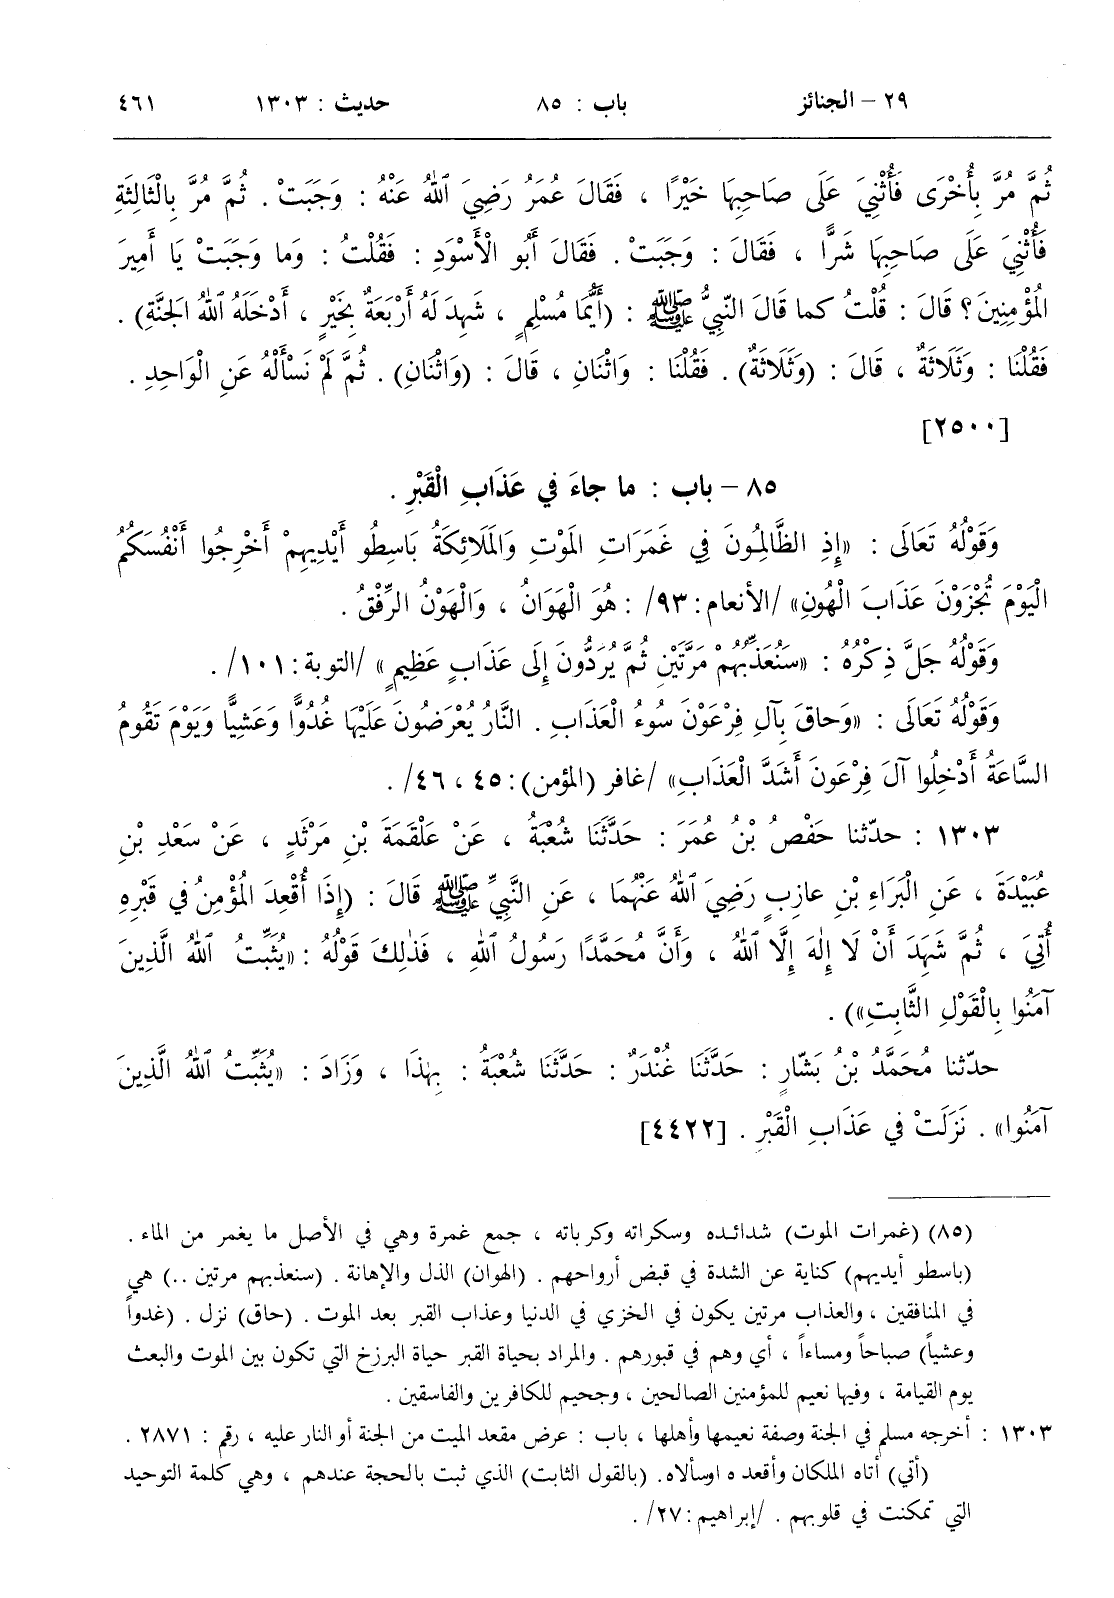 ٢٩ – الجنائز باب : ٨٥ حديث : ١٣٠٣ ٤٦١
ثُمَّ مُرَّ بِأُخْرَى فَأُثْنِيَ عَلَى صَاحِبِهَا خَيْرًا ، فَقَالَ عُمَرُ رَضِيَ ٱللهُ عَنْهُ : وَجَبَتْ . ثُمَّ مُرَّ بِالْثَالِثَةِ
فَأُثْنِيَ عَلَى صَاحِبِهَا شَرًّا ، فَقَالَ : وَجَبَتْ . فَقَالَ أَبُو الْأَسْوَدِ : فَقُلْتُ : وَما وَجَبَتْ يَا أَمِيرَ
الْمُؤْمِنِينَ ؟ قَالَ : قُلْتُ كما قالَ النَّبِيُّ ﷺ : (أَيُّمَا مُسْلِمٍ ، شَهِدَ لَهُ أَرْبَعَةٌ بِخَيْرٍ ، أَدْخَلَهُ ٱللهُ الجَنَّةَ) .
فَقُلْنَا : وَثَلَاثَةٌ ، قَالَ : (وَثَلَاثَةٌ) . فَقُلْنَا : وَاثْنَانِ ، قَالَ : (وَاثْنَانِ) . ثُمَّ لَمْ نَسْأَلْهُ عَنِ الْوَاحِدِ .
[٢٥٠٠]
٨٥ – باب : ما جاءَ في عَذَابِ الْقَبْرِ .
وَقَوْلُهُ تَعَالَى : «إِذِ الظَّالِمُونَ فِي غَمَرَاتِ المَوْتِ وَالمَلَائِكَةُ بَاسِطُو أَيْدِيهِمْ أَخْرِجُوا أَنْفُسَكُمُ
الْيَوْمَ تُجْزَوْنَ عَذَابَ الْهُونِ» /الأنعام : ٩٣/ : هُوَ الْهَوَانُ ، وَالْهَوْنُ الرِّفْقُ .
وَقَوْلُهُ جَلَّ ذِكْرُهُ : «سَنُعَذِّبُهُمْ مَرَّتَيْنِ ثُمَّ يُرَدُّونَ إِلَى عَذَابٍ عَظِيمٍ» /التوبة : ١٠١/ .
وَقَوْلُهُ تَعَالَى : «وَحَاقَ بِآلِ فِرْعَوْنَ سُوءُ الْعَذَابِ . النَّارُ يُعْرَضُونَ عَلَيْهَا غُدُوًّا وَعَشِيًّا وَيَوْمَ تَقُومُ
السَّاعَةُ أَدْخِلُوا آلَ فِرْعَونَ أَشَدَّ الْعَذَابِ» /غافر (المؤمن) : ٤٥ ، ٤٦/ .
١٣٠٣ : حدّثنا حَفْصُ بْنُ عُمَرَ : حَدَّثَنَا شُعْبَةُ ، عَنْ عَلْقَمَةَ بْنِ مَرْثَدٍ ، عَنْ سَعْدِ بْنِ
عُبَيْدَةَ ، عَنِ الْبَرَاءِ بْنِ عازِبٍ رَضِيَ ٱللهُ عَنْهُمَا ، عَنِ النَّبِيِّ ﷺ قَالَ : (إِذَا أُقْعِدَ الْمُؤْمِنُ في قَبْرِهِ
أُتِيَ ، ثُمَّ شَهِدَ أَنْ لَا إِلٰهَ إِلَّا ٱللهُ ، وَأَنَّ مُحَمَّدًا رَسُولُ ٱللهِ ، فَذٰلِكَ قَوْلُهُ : «يُثَبِّتُ ٱللهُ الَّذِينَ
آمَنُوا بِالْقَوْلِ الثَّابِتِ») .
حدّثنا مُحَمَّدُ بْنُ بَشَّارٍ : حَدَّثَنَا غُنْدَرٌ : حَدَّثَنَا شُعْبَةُ : بِهٰذَا ، وَزَادَ : «يُثَبِّتُ ٱللهُ الَّذِينَ
آمَنُوا» . نَزَلَتْ في عَذَابِ الْقَبْرِ . [٤٤٢٢]
(٨٥) (غمرات الموت) شدائده وسكراته وكرباته ، جمع غمرة وهي في الأصل ما يغمر من الماء .
(باسطو أيديهم) كناية عن الشدة في قبض أرواحهم . (الهوان) الذل والإهانة . (سنعذبهم مرتين ..) هي
في المنافقين ، والعذاب مرتين يكون في الخزي في الدنيا وعذاب القبر بعد الموت . (حاق) نزل . (غدواً
وعشياً) صباحاً ومساءاً ، أي وهم في قبورهم . والمراد بحياة القبر حياة البرزخ التي تكون بين الموت والبعث
يوم القيامة ، وفيها نعيم للمؤمنين الصالحين ، وجحيم للكافرين والفاسقين .
١٣٠٣ : أخرجه مسلم في الجنة وصفة نعيمها وأهلها ، باب : عرض مقعد الميت من الجنة أو النار عليه ، رقم : ٢٨٧١ .
(أتي) أتاه الملكان وأقعد ه اوسألاه . (بالقول الثابت) الذي ثبت بالحجة عندهم ، وهي كلمة التوحيد
التي تمكنت في قلوبهم . /إبراهيم : ٢٧/ .